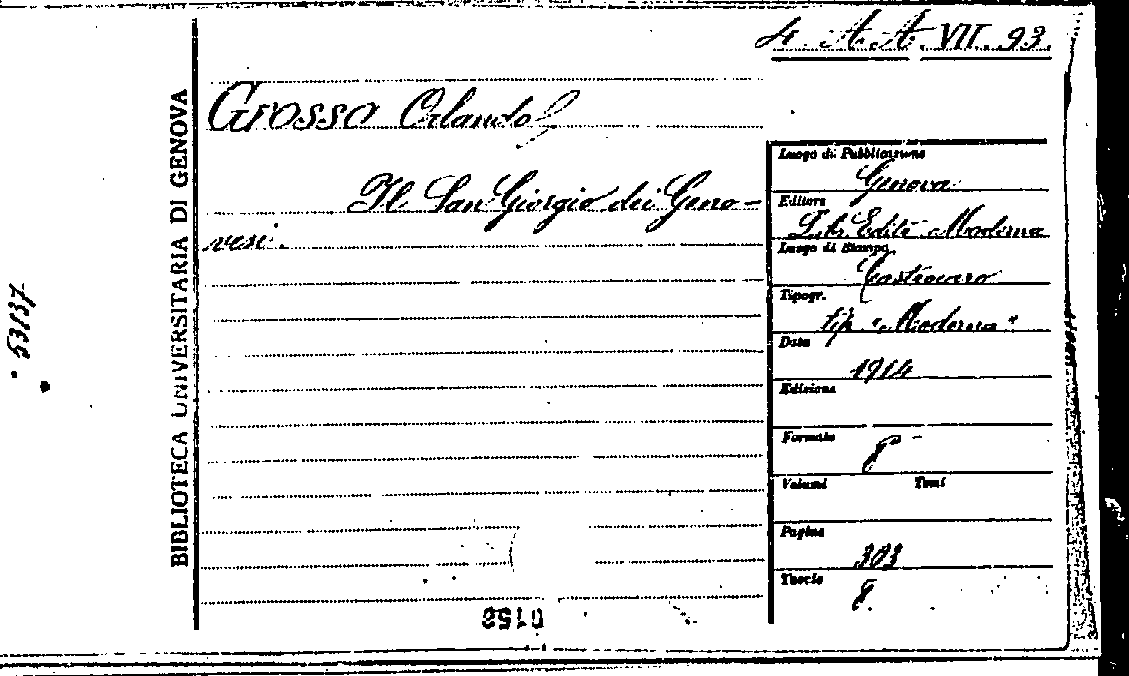 4. A.A. VII. 93.
GROSSO Orlando
Il San Giorgio dei Geno-
vesi.
BIBLIOTECA UNIVERSITARIA DI GENOVA
53137
Luogo di Pubblicazione
Genova
Editore
Lib. Edit. Moderna
Luogo di Stampa
Castrocaro
Tipogr.
tip. "Moderna"
Data
1914
Edizione
Formato
8°
Volumi Tomi
Pagine
303
Tavole
8.
0158